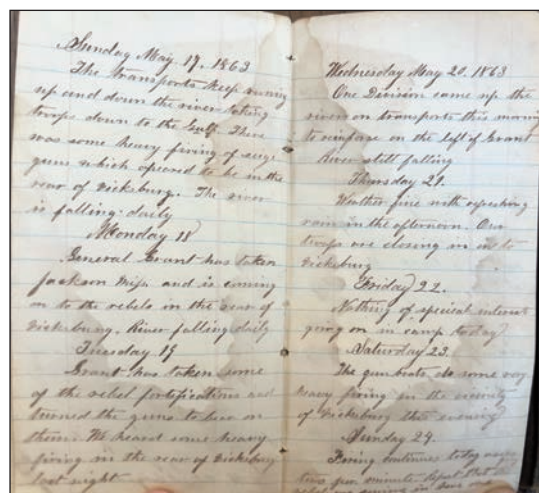 Sunday May 17, 1863
The transports keep runing
up and down the river taking
troops down to the Gulf. There
was some heavy firing of seige
guns which apeared to be in the
rear of Vicksburg. The river
is falling daily
Monday 18
General Grant has taken
Jackson Miss. and is coming
on to the rebels in the rear of
Vicksburg. River falling daily
Tuesday 19
Grant has taken some
of the rebel fortifications and
turned the guns to bear on
them. We heard some heavy
firing in the rear of Vicksburg
last night
Wednesday May 20, 1863
One Division came up the
river on transports this morning
to reinforce on the left of Grant
River still falling
Thursday 21.
Weather fine with refreshing
rain in the afternoon. Our
troops are closing in to
Vicksburg
Friday 22.
Nothing of special interest
going on in camp today
Saturday 23.
The gunboats do some very
heavy firing in the vicinity
of Vicksburg this evening
Sunday 24.
Firing continues today
two per minute. Report that the